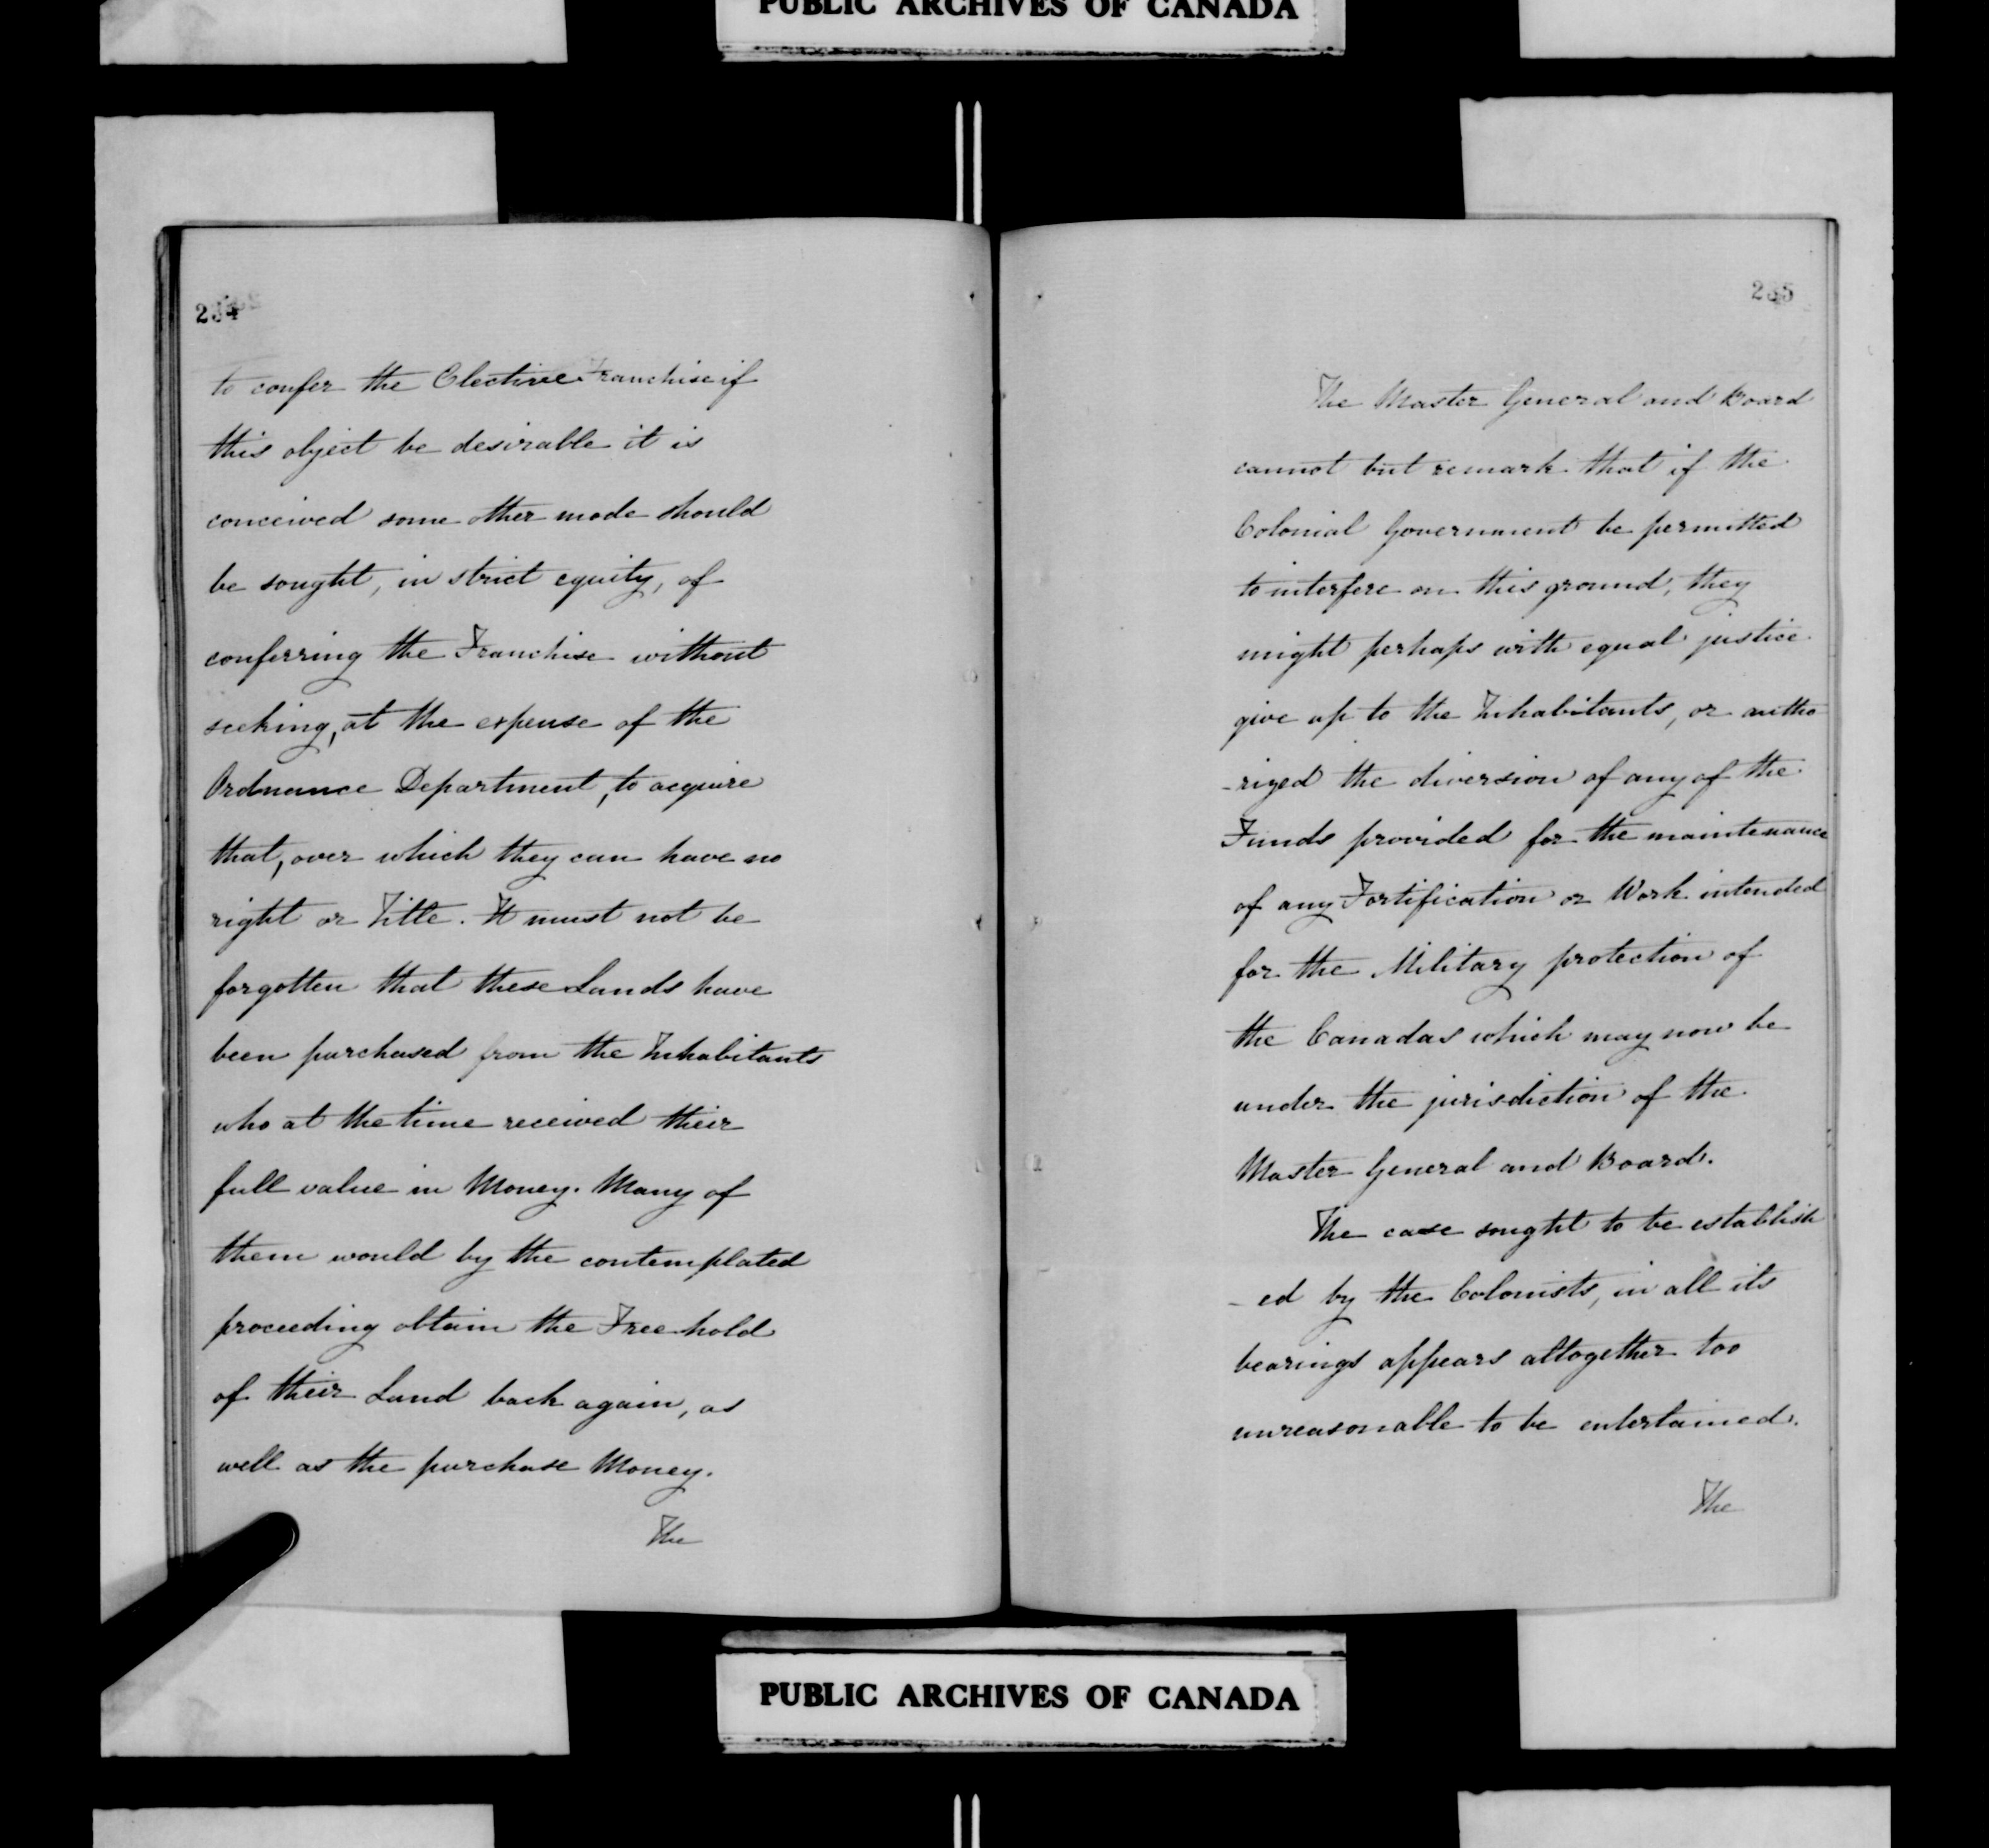 PUBLIC ARCHIVES OF CANADA
234
to confer the Elective Franchise if
this object be desirable it is
conceived some other mode should
be sought, in strict equity, of
conferring the Franchise without
seeking, at the expense of the
Ordnance Department, to acquire
that, over which they can have no
right or Title. It must not be
forgotten that these Lands have
been purchased from the Inhabitants
who at the time received their
full value in Money. Many of
them would by the contemplated
proceeding obtain the Freehold
of their Land back again, as
well as the purchase Money.
The
235
The Master General and Board
cannot but remark that if the
Colonial Government be permitted
to interfere on this ground, they
might perhaps with equal justice
give up to the Inhabitants, or autho
-rized the diversion of any of the
Funds provided for the maintenance
of any Fortification or Work intended
for the Military protection of
the Canadas which may now be
under the jurisdiction of the
Master General and Board.
The case sought to be establish
-ed by the Colonists, in all its
bearings appears altogether too
unreasonable to be entertained.
The
PUBLIC ARCHIVES OF CANADA